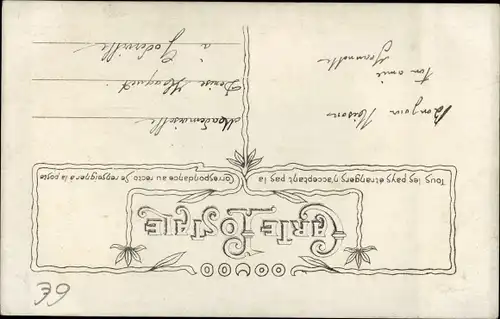 CARTE POSTALE
Tous les pays étrangers n'acceptant pas la
Correspondance au recto Se renseigner à la poste
Mademoiselle
Denise
à Goderville
Ton amie
Jeannette